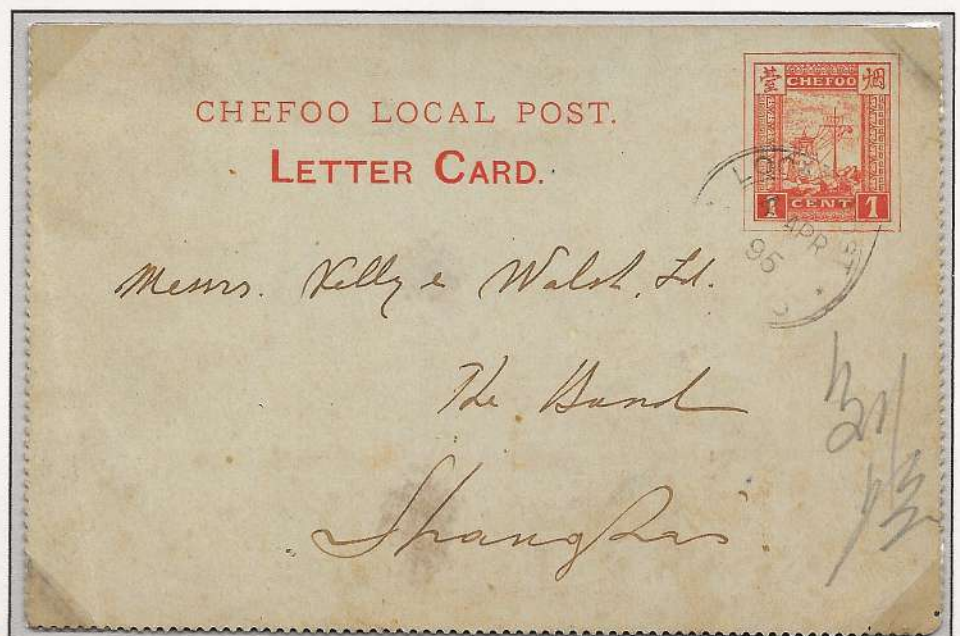 CHEFOO LOCAL POST.
LETTER CARD.
臺 CHEFOO 烟
1 CENT 1
LOCAL POST
APR
95
Messrs. Kelly & Walsh, Ld.
The Bund
Shanghai